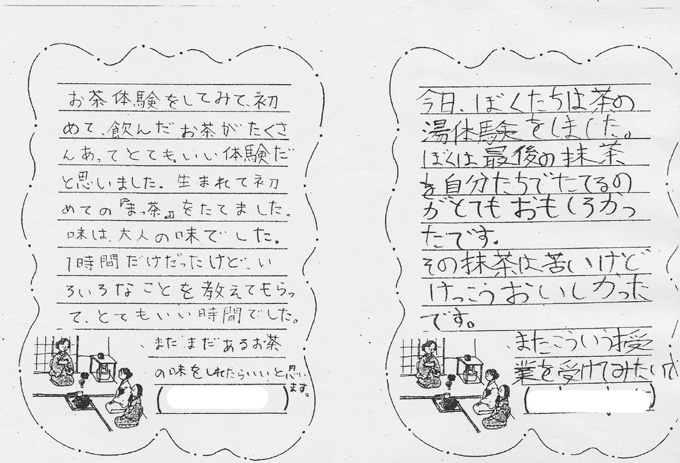 お茶体験をしてみて、初
めて、飲んだお茶がたくさ
んあってとてもいい体験だ
と思いました。生まれて初
めての『まっ茶』をたてました。
味は、大人の味でした。
1時間だけだったけど、い
ろいろなことを教えてもらっ
て、とてもいい時間でした。
まだまだあるお茶
の味をしれたらいいと思い
ます。
今日、ぼくたちは茶の
湯体験をしました。
ぼくは最後の抹茶
を自分たちでたてるの
がとてもおもしろかっ
たです。
その抹茶は苦いけど
けっこうおいしかった
です。
またこういう授
業を受けてみたいで